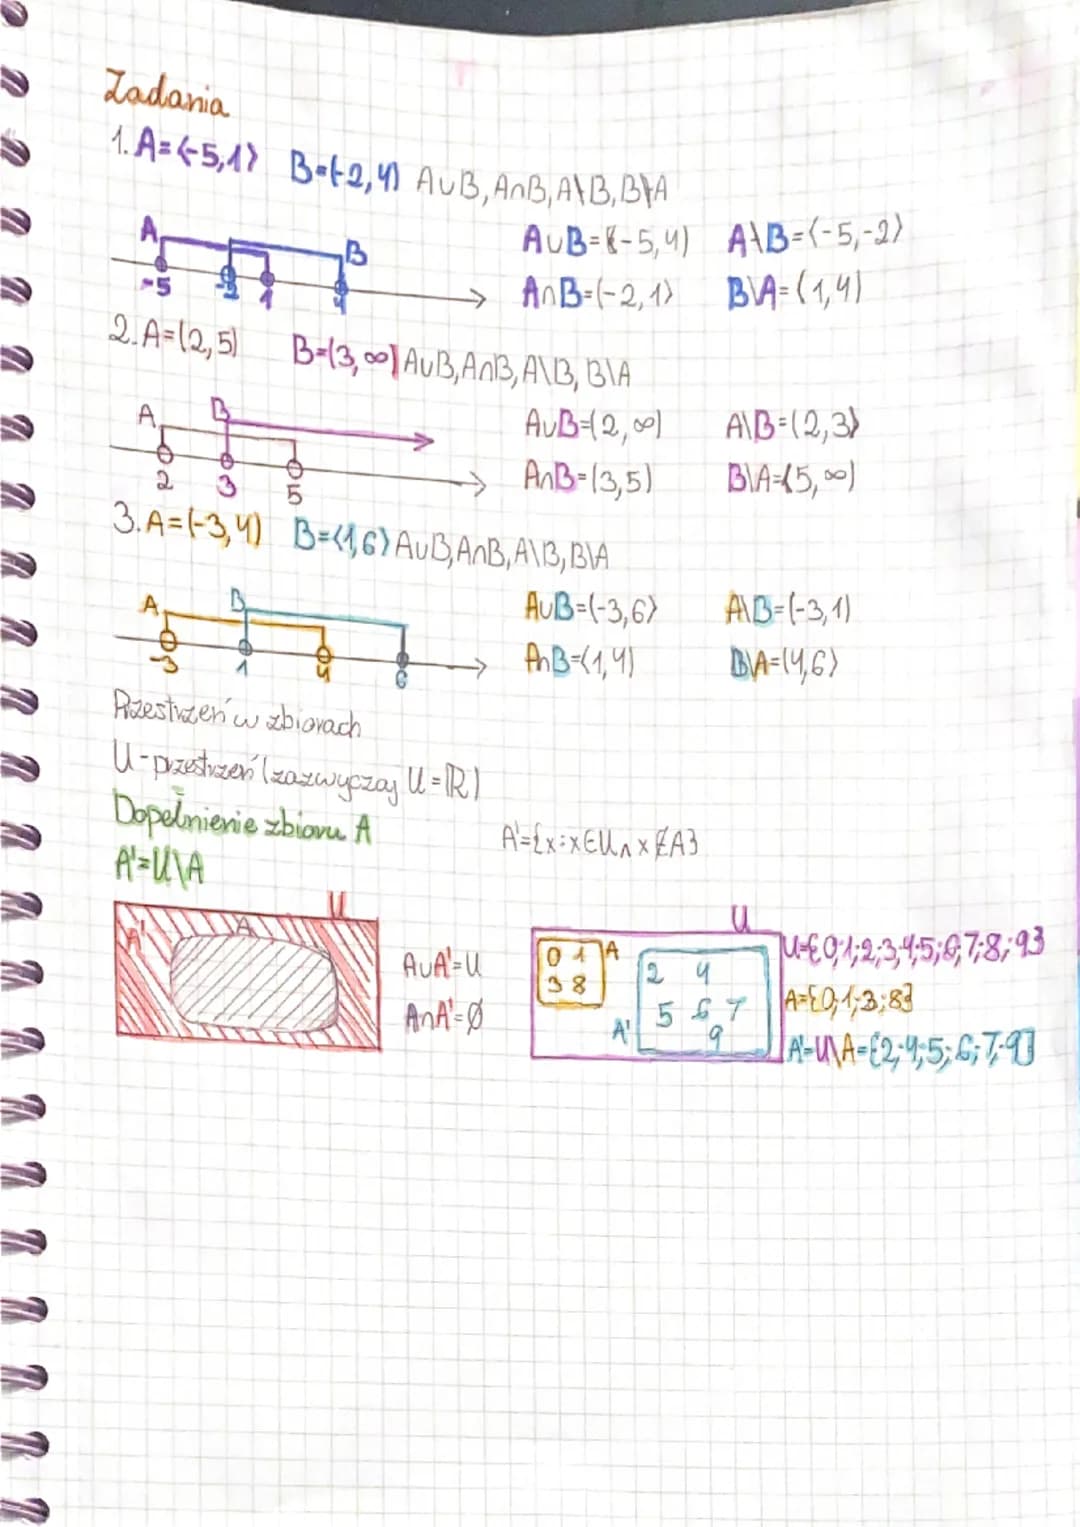 Zadania
1. A=⟨-5,1⟩ B=(-2,4) A∪B, A∩B, A\B, B\A
A B
-5 -2 1 4
A∪B=⟨-5,4) A\B=⟨-5,-2⟩
A∩B=(-2,1⟩ B\A=(1,4)
2. A=(2,5) B=(3,∞) A∪B, A∩B, A\B, B\A
A B
2 3 5
A∪B=(2,∞) A\B=(2,3⟩
A∩B=(3,5) B\A=⟨5,∞)
3. A=(-3,4) B=⟨1,6⟩ A∪B, A∩B, A\B, B\A
A B
-3 1 4 6
A∪B=(-3,6⟩ A\B=(-3,1)
A∩B=⟨1,4) B\A=⟨4,6⟩
Przestrzeń w zbiorach
U-przestrzeń (zazwyczaj U=ℝ)
Dopełnienie zbioru A
A'={x:x∈U∧x∉A}
A'=U\A
U
A' A
A∪A'=U
A∩A'=∅
U
0 1 A
3 8
2 4
5 6 7
A' 9
U={0;1;2;3;4;5;6;7;8;9}
A={0;1;3;8}
A'=U\A={2;4;5;6;7;9}